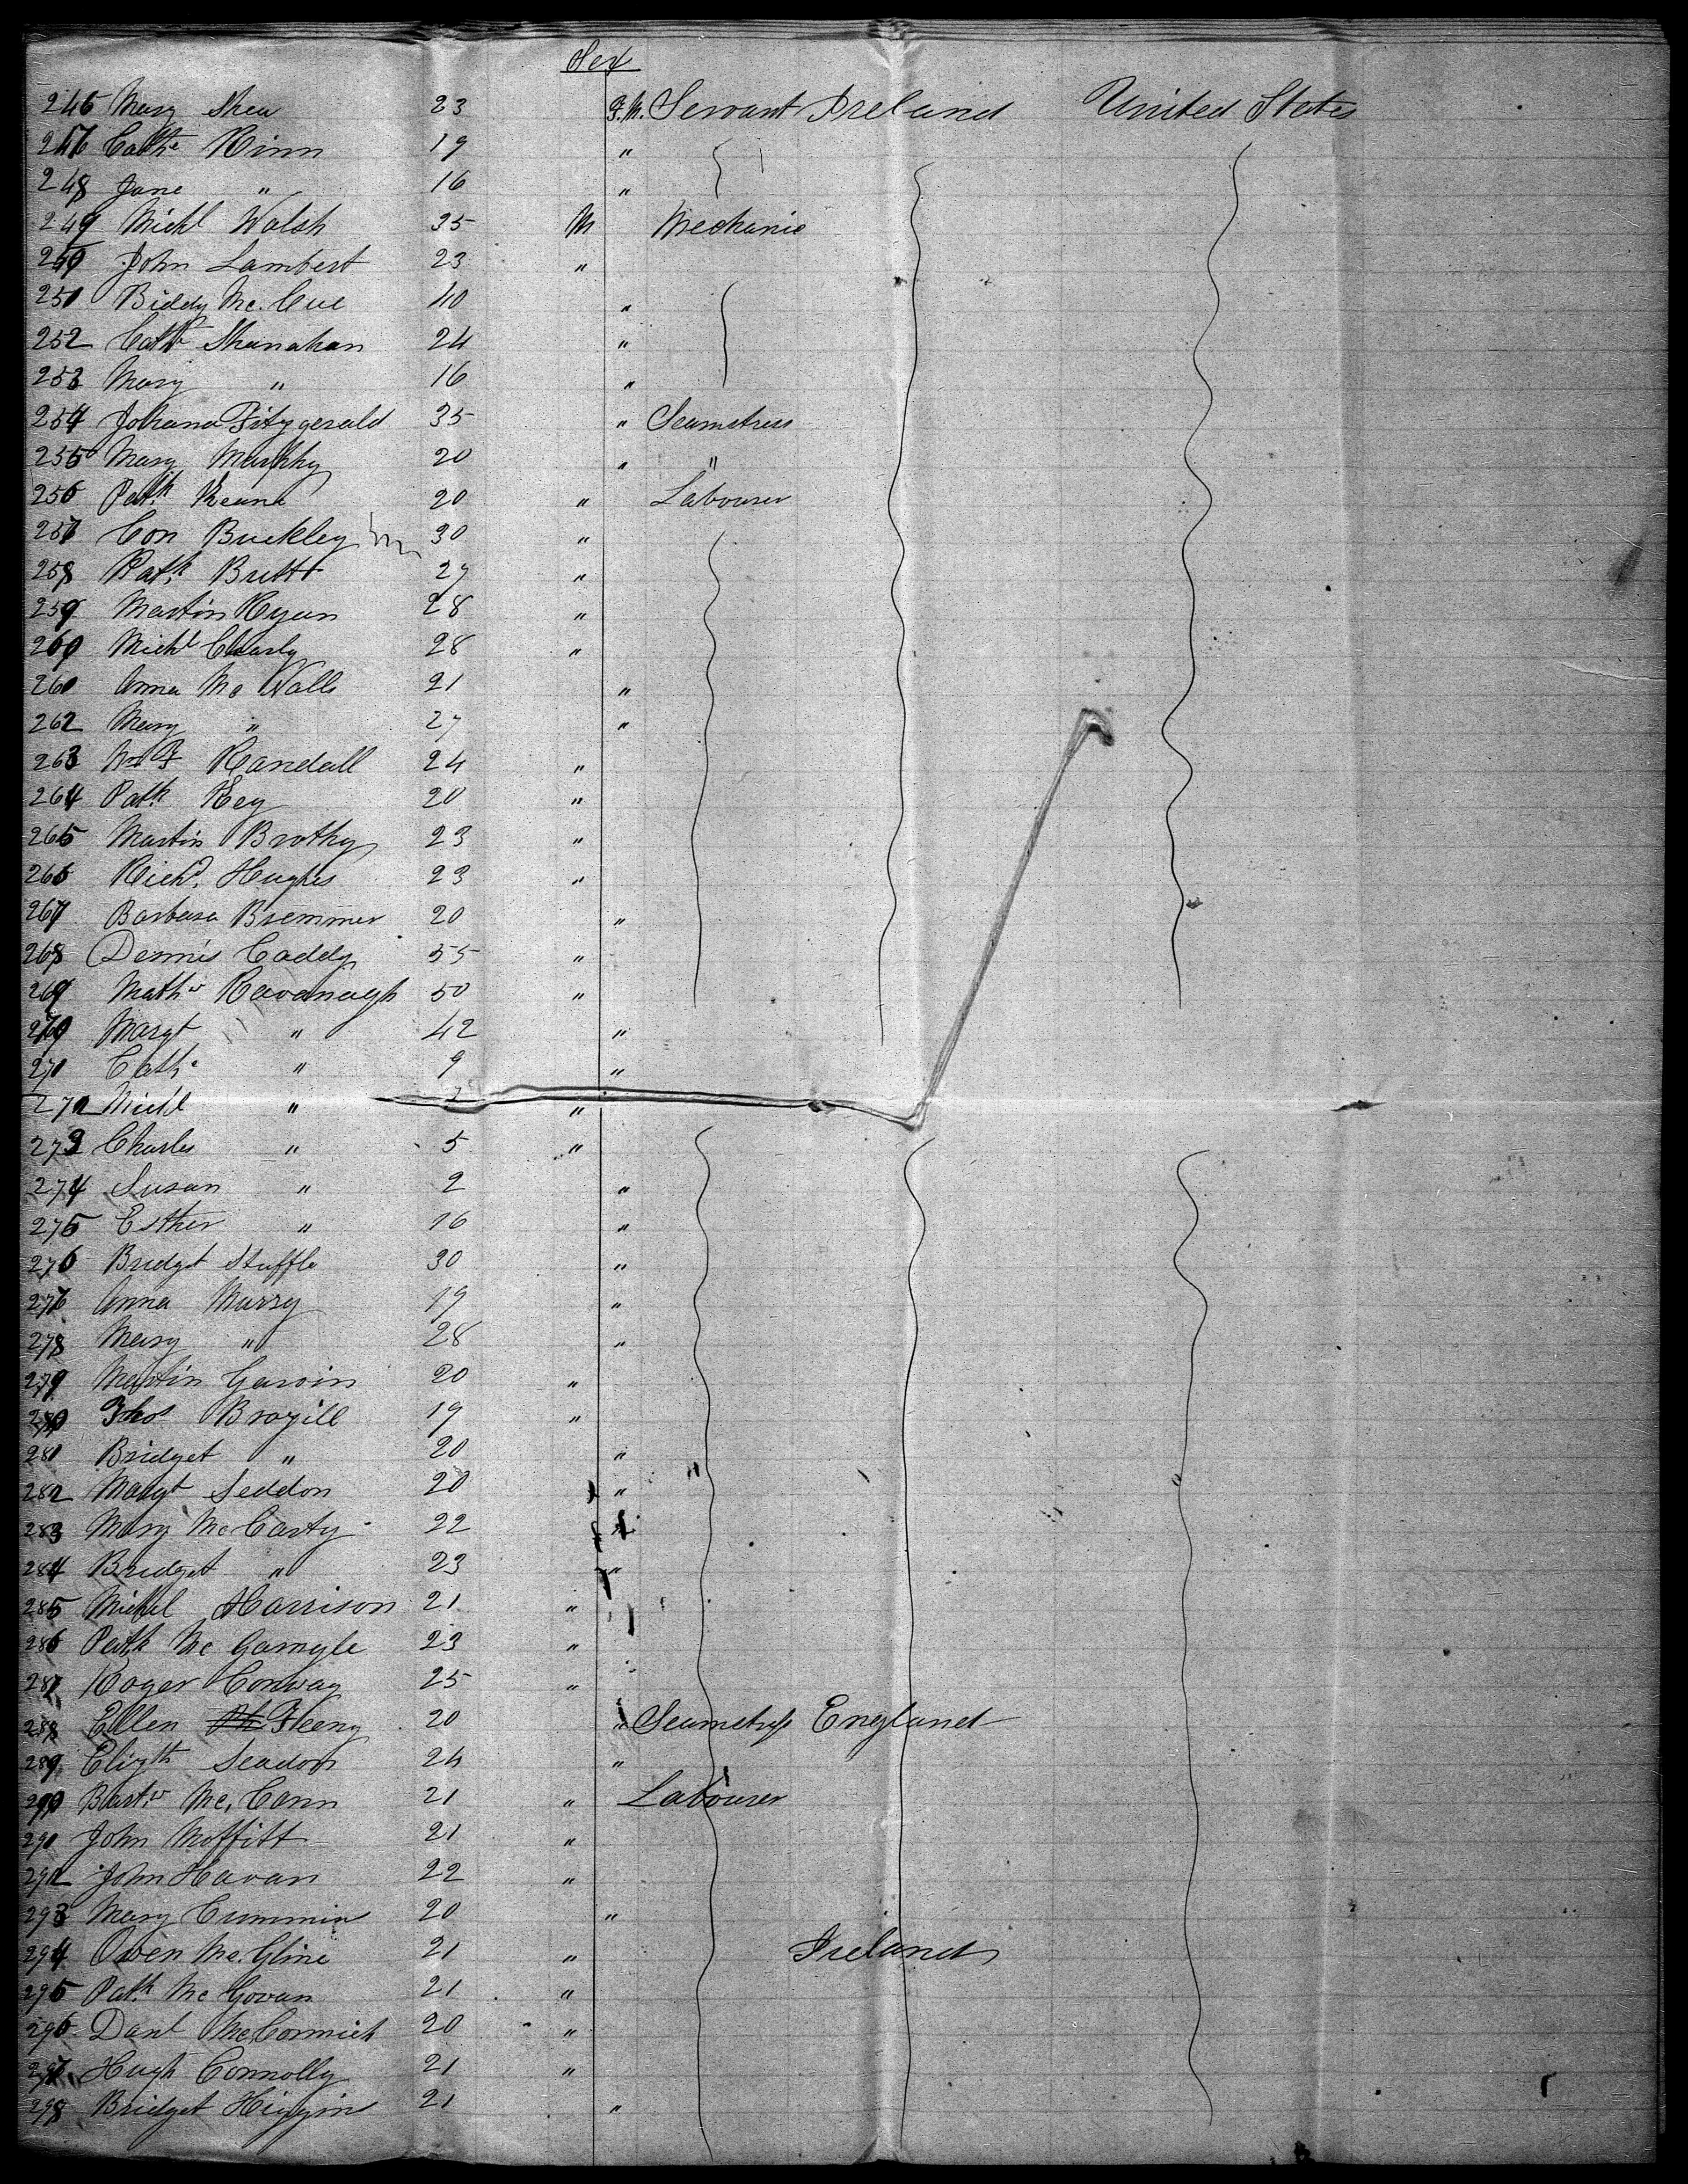 Sex
246 Mary Shea 23 F.M. Servant Ireland United States
247 Cathe Kinn 19 "
248 Jane " 16 "
249 Michl Walsh 35 M Mechanic
250 John Lambert 23 "
251 Biddy Mc. Cue 40 "
252 Cathe Shanahan 24 "
253 Mary " 16 "
254 Johana Fitzgerald 35 " Seamstress
255 Mary Murphy 20 " "
256 Patk Keane 20 " Labourer
257 Con Buckley 30 "
258 Patk Britt 27 "
259 Martin Ryan 28 "
260 Michl Clearly 28 "
261 Anna Mc Nalls 21 "
262 Mary " 27 "
263 Randall 24 "
264 Patk Key 20 "
265 Martin Brothy 23 "
266 Richd. Hughes 23 "
267 Barbara Bremmer 20 "
268 Dennis Caddy 55 "
269 Mathw Kavanagh 50 "
270 Margt " 42 "
271 Cathe " 9 "
272 Michl " 7 "
273 Charles " 5 "
274 Susan " 2 "
275 Esther " 16 "
276 Bridgt Stuffle 30 "
277 Anna Murry 19 "
278 Mary " 28 "
279 Martin Garvin 20 "
280 Thos Brogill 19 "
281 Bridget " 20 "
282 Margt Seddon 20 "
283 Mary McCarty 22 "
284 Bridget " 23 "
285 Michl Harrison 21 "
286 Patk Mc Garngle 23 "
287 Roger Conway 25 "
288 Ellen Feeny 20 " Seamstress England
289 Elizth Seadon 24 "
290 Bartw Mc. Cann 21 " Labourer
291 John Moffitt 21 "
292 John Havan 22 "
293 Mary Cummins 20 "
294 Owen Mc. Gline 21 " Ireland
295 Patk Mc Govan 21 "
296 Danl McCormick 20 "
297 Hugh Connolly 21 "
298 Bridget Higgins 21 "